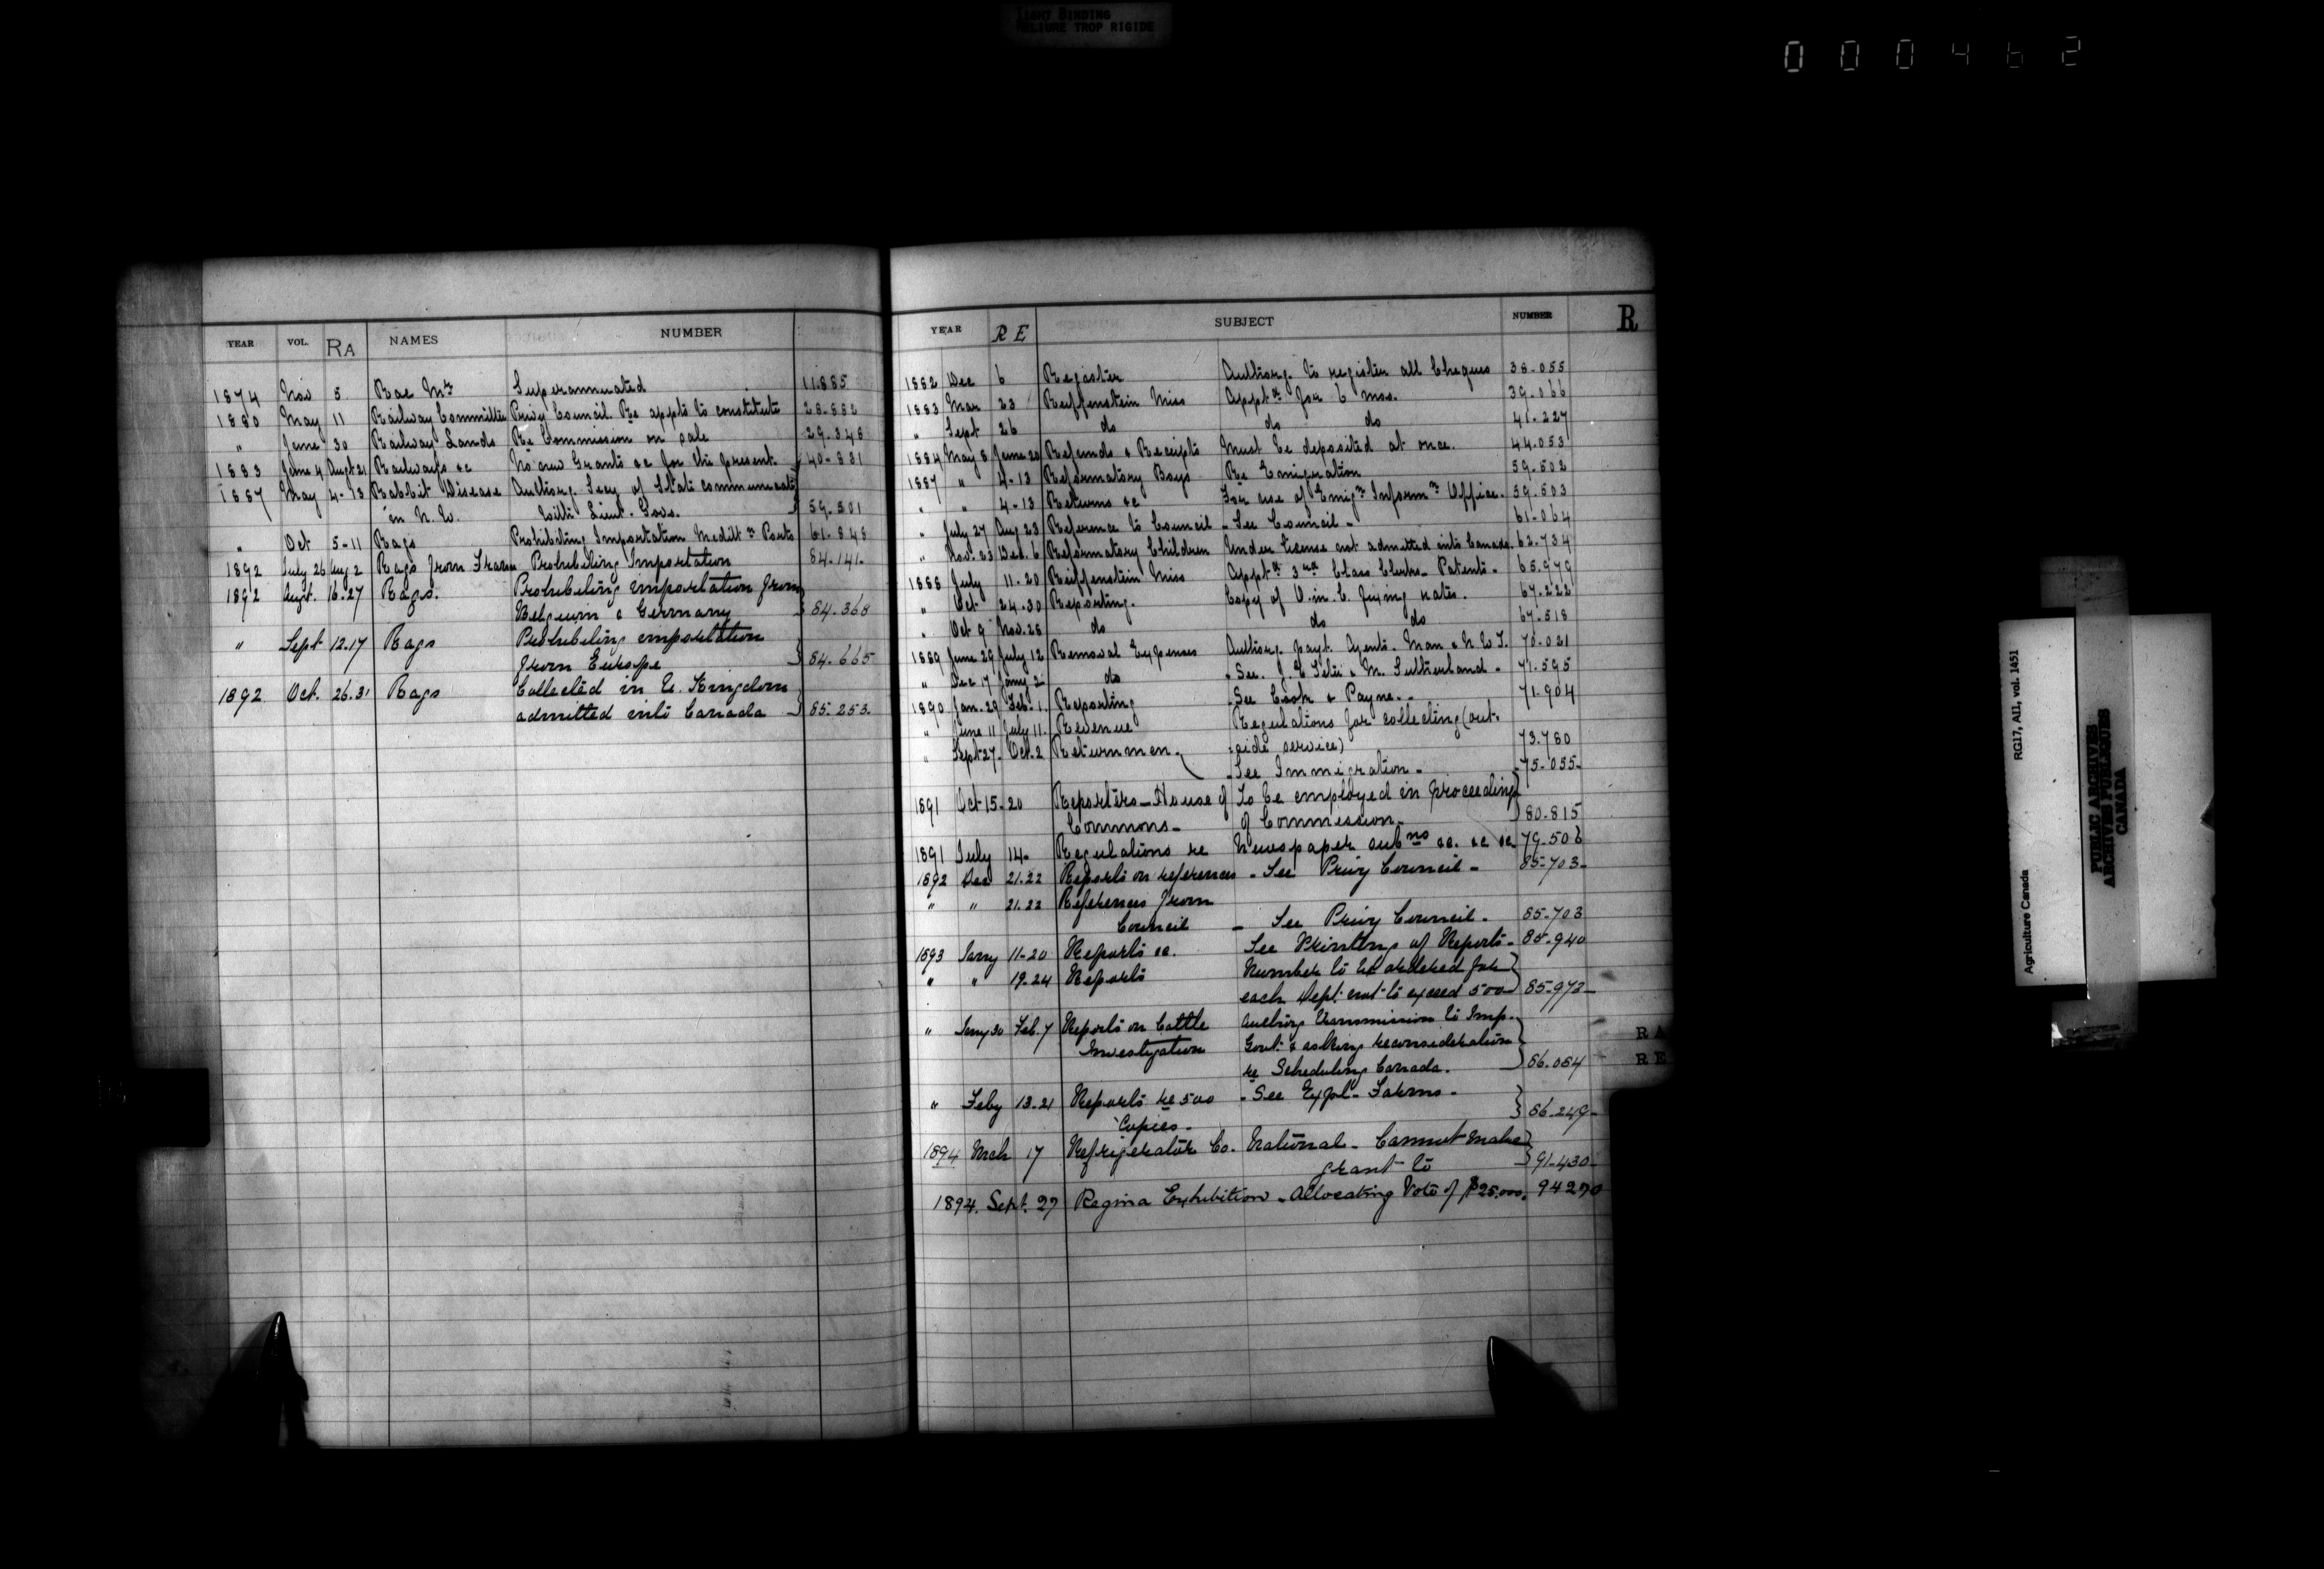 TIGHT BINDING
RELIURE TROP RIGIDE
000462
YEAR VOL. RA NAMES NUMBER
1874 Nov 5 Rae Mr Superannuated 11.885
1880 May 11 Railway Committee Privy Council Re appts to constitute 28.882
" June 30 Railway Lands Re Commission on sale 29.348
1883 June 4 Augt 21 Railways &c No new Grants &c for the present. 40-831
1887 May 4-13 Rabbit Disease Authorg. Secy of State communicate
in N.W. with Lieut. Govs. 59.501
" Oct 5-11 Rags Prohibiting Importation Medit n Ports 61.848
1892 July 26 Aug 2 Rags from France Prohibiting Importation 84.141-
1892 Augt. 16-27 Rags. Prohibiting importation from
Belgium & Germany 84.368
" Sept 12.17 Rags Prohibiting importation
from Europe 84.665
1892 Oct. 26.31 Rags Collected in U. Kingdom
admitted into Canada 85.253.
YEAR RE SUBJECT NUMBER R
1882 Dec 6 Register Authorg. to register all Cheques 38-055
1883 Mar 23 Reiffenstein Miss Appt d for 6 mos. 39.066
" Sept 26 do do do 41-227
1884 May 8 June 20 Refunds & Receipts Must be deposited at once. 44.053
1887 " 4-13 Reformatory Boys Re Emigration 59.502
" " 4-13 Returns &c For use of Emig n Inform n Office. 59.503
" July 27 Aug 23 Reference to Council - See Council - 61-064
" Nov. 23 Dec. 6 Reformatory Children Under license not admitted into Canada. 62.734
1888 July 11-20 Reiffenstein Miss Appt d 3rd Class Clerk - Patents - 65.979
" Oct 24-30 Reporting. Copy of O. in. C. fixing rates. 67.222
" Oct 9 Nov. 28 do do do 67.518
1889 June 29 July 12 Removal Expenses Authorg. payt. Agents. Man & N.W.T. 70.021
" Dec 17 Jany 2 do - See. & M. Sutherland - 71.595
1890 Jan. 29 Feb. 1. Reporting - See Cook & Payne. - 71.904
" June 11 July 11. Revenue Regulations for collecting (out-
" Sept 27- Oct. 2 Return men. side service) 73.780
- See Immigration - -75-055-
1891 Oct 15-20 Reporters - House of To be employed in proceeding
Commons - of Commission - 80.815
1891 July 14- Regulations re Newspaper sub ns &c. &c &c 79-506
1892 Dec 21.22 Reports on references - See Privy Council - 85-703-
" " 21.22 References from
Council - See Privy Council - 85-703
1893 Jany 11-20 Reports &c. See Printing of Reports - 85-940
" " 19-24 Reports Number to be ordered for
each Dept. not to exceed 500 85-973-
" Jany 30 Feb. 7 Reports on Cattle Authorg transmission to Imp.
Investigation Govt. & asking reconsideration
re Scheduling Canada. 86.084
" Feby 13-21 Reports re 500 - See Expl. Farms - 86-249-
Copies -
1894 Mch 17 Refrigerator Co. National - Cannot make
grant to 91-430-
1894. Sept. 27 Regina Exhibition - Allocating Vote of $25.000. 94270
RA
RE
Agriculture Canada RG17, AII, vol. 1451
PUBLIC ARCHIVES
ARCHIVES PUBLIQUES
CANADA